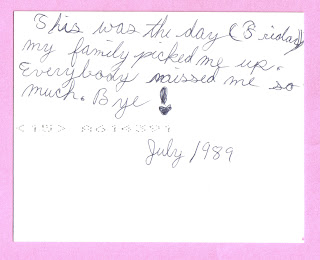 This was the day (Friday)
my family picked me up.
Everybody missed me so
much. Bye!
<15> 8616591
July 1989